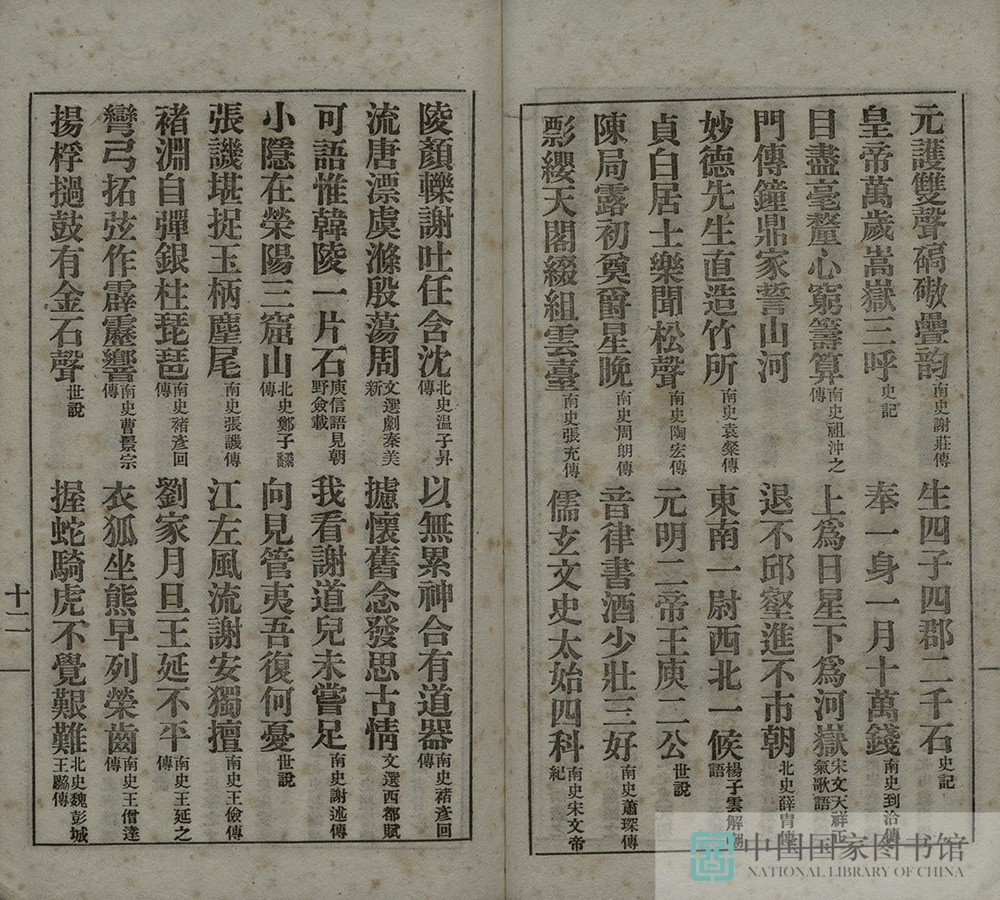 元護雙聲碻磝疊韵南史謝莊傳　生四子四郡二千石史記
皇帝萬歲嵩嶽三呼史記　奉一身一月十萬錢南史到洽傳
目盡毫釐心窮籌算南史祖沖之傳　上爲日星下爲河嶽宋文天祥正氣歌語
門傳鐘鼎家誓山河　退不邱壑進不市朝北史薛冑傳
妙德先生直造竹所南史袁粲傳　東南一尉西北一候楊子雲解嘲語
貞白居士樂聞松聲南史陶宏傳　元明二帝王庾二公世說
陳局露初奠爵星晚南史周朗傳　音律書酒少壯三好南史蕭琛傳
影纓天閣綴組雲臺南史張充傳　儒玄文史太始四科南史宋文帝紀
陵顏轢謝吐任含沈北史温子昇傳　以無累神合有道器南史褚彥回傳
流唐漂虞滌殷蕩周文選劇秦美新　攄懷舊念發思古情文選西都賦
可語惟韓陵一片石庾信語見朝野僉載　我看謝道兒未嘗足南史謝述傳
小隱在榮陽三窟山北史鄭子翻傳　向見管夷吾復何憂世說
張譏堪捉玉柄麈尾南史張譏傳　江左風流謝安獨擅南史王儉傳
褚淵自彈銀柱琵琶南史褚彥回傳　劉家月旦王延不平南史王延之傳
彎弓拓弦作霹靂響南史曹景宗傳　衣狐坐熊早列榮齒南史王僧達傳
揚桴撾鼓有金石聲世說　握蛇騎虎不覺艱難北史魏彭城王勰傳
十二
中国国家图书馆
NATIONAL LIBRARY OF CHINA